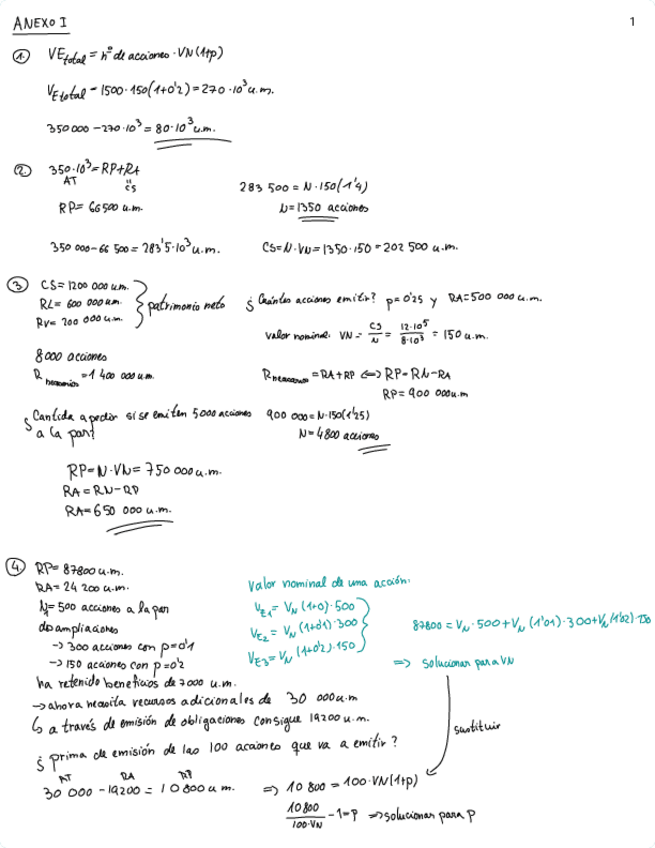 ANEXO I
1
① VEtotal = nº de acciones · VN(1+p)
VEtotal = 1500·150(1+0'2) = 270·10³ u.m.
350 000 – 270·10³ = 80·10³ u.m.
② 350·10³ = RP + RA
AT
CS
RP = 66 500 u.m.
283 500 = N·150(1'4)
N = 1350 acciones
350 000 – 66 500 = 283'5·10³ u.m.
CS = N·VN = 1350·150 = 202 500 u.m.
③ CS = 1200 000 u.m.
RL = 600 000 u.m.
RV = 200 000 u.m.
patrimonio neto
¿Cuántas acciones emitir? p=0'25 y RA=500 000 u.m.
valor nominal VN = CS/N = 12·10⁵/8·10³ = 150 u.m.
8000 acciones
R necesarios = 1 400 000 u.m.
R necesarios = RA+RP ⟺ RP = RN–RA
RP = 900 000 u.m
¿Cantida a pedir si se emiten 5000 acciones
a la par?
900 000 = N·150(1'25)
N = 4800 acciones
RP = N·VN = 750 000 u.m.
RA = RN–RP
RA = 650 000 u.m.
④ RP = 87800 u.m.
RA = 24 200 u.m.
N = 500 acciones a la par
dos ampliaciones
→ 300 acciones con p=0'1
→ 150 acciones con p=0'2
ha retenido beneficios de 7000 u.m.
→ ahora necesita recursos adicionales de 30 000 u.m
↳ a través de emisión de obligaciones consigue 19200 u.m.
¿ prima de emisión de las 100 acciones que va a emitir?
AT RA RP
30 000 – 19200 = 10 800 u.m.
valor nominal de una acción:
VE1 = VN (1+0)·500
VE2 = VN (1+0'1)·300
VE3 = VN (1+0'2)·150
87800 = VN·500 + VN (1'01)·300 + VN (1'02)·150
⇒ solucionar para VN
sustituir
⇒ 10 800 = 100·VN(1+p)
10800/100·VN – 1 = p ⇒ solucionar para p